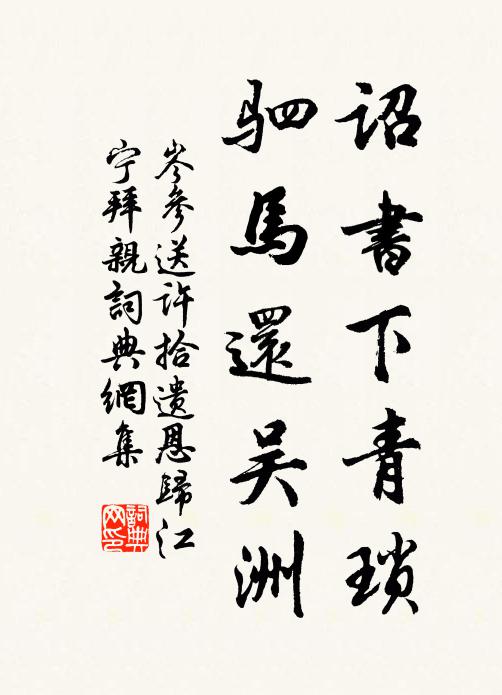 诏書下青瑣
駟馬還吴洲
岑參送許拾遗恩歸江
宁拜親詞典網集
詞典网印